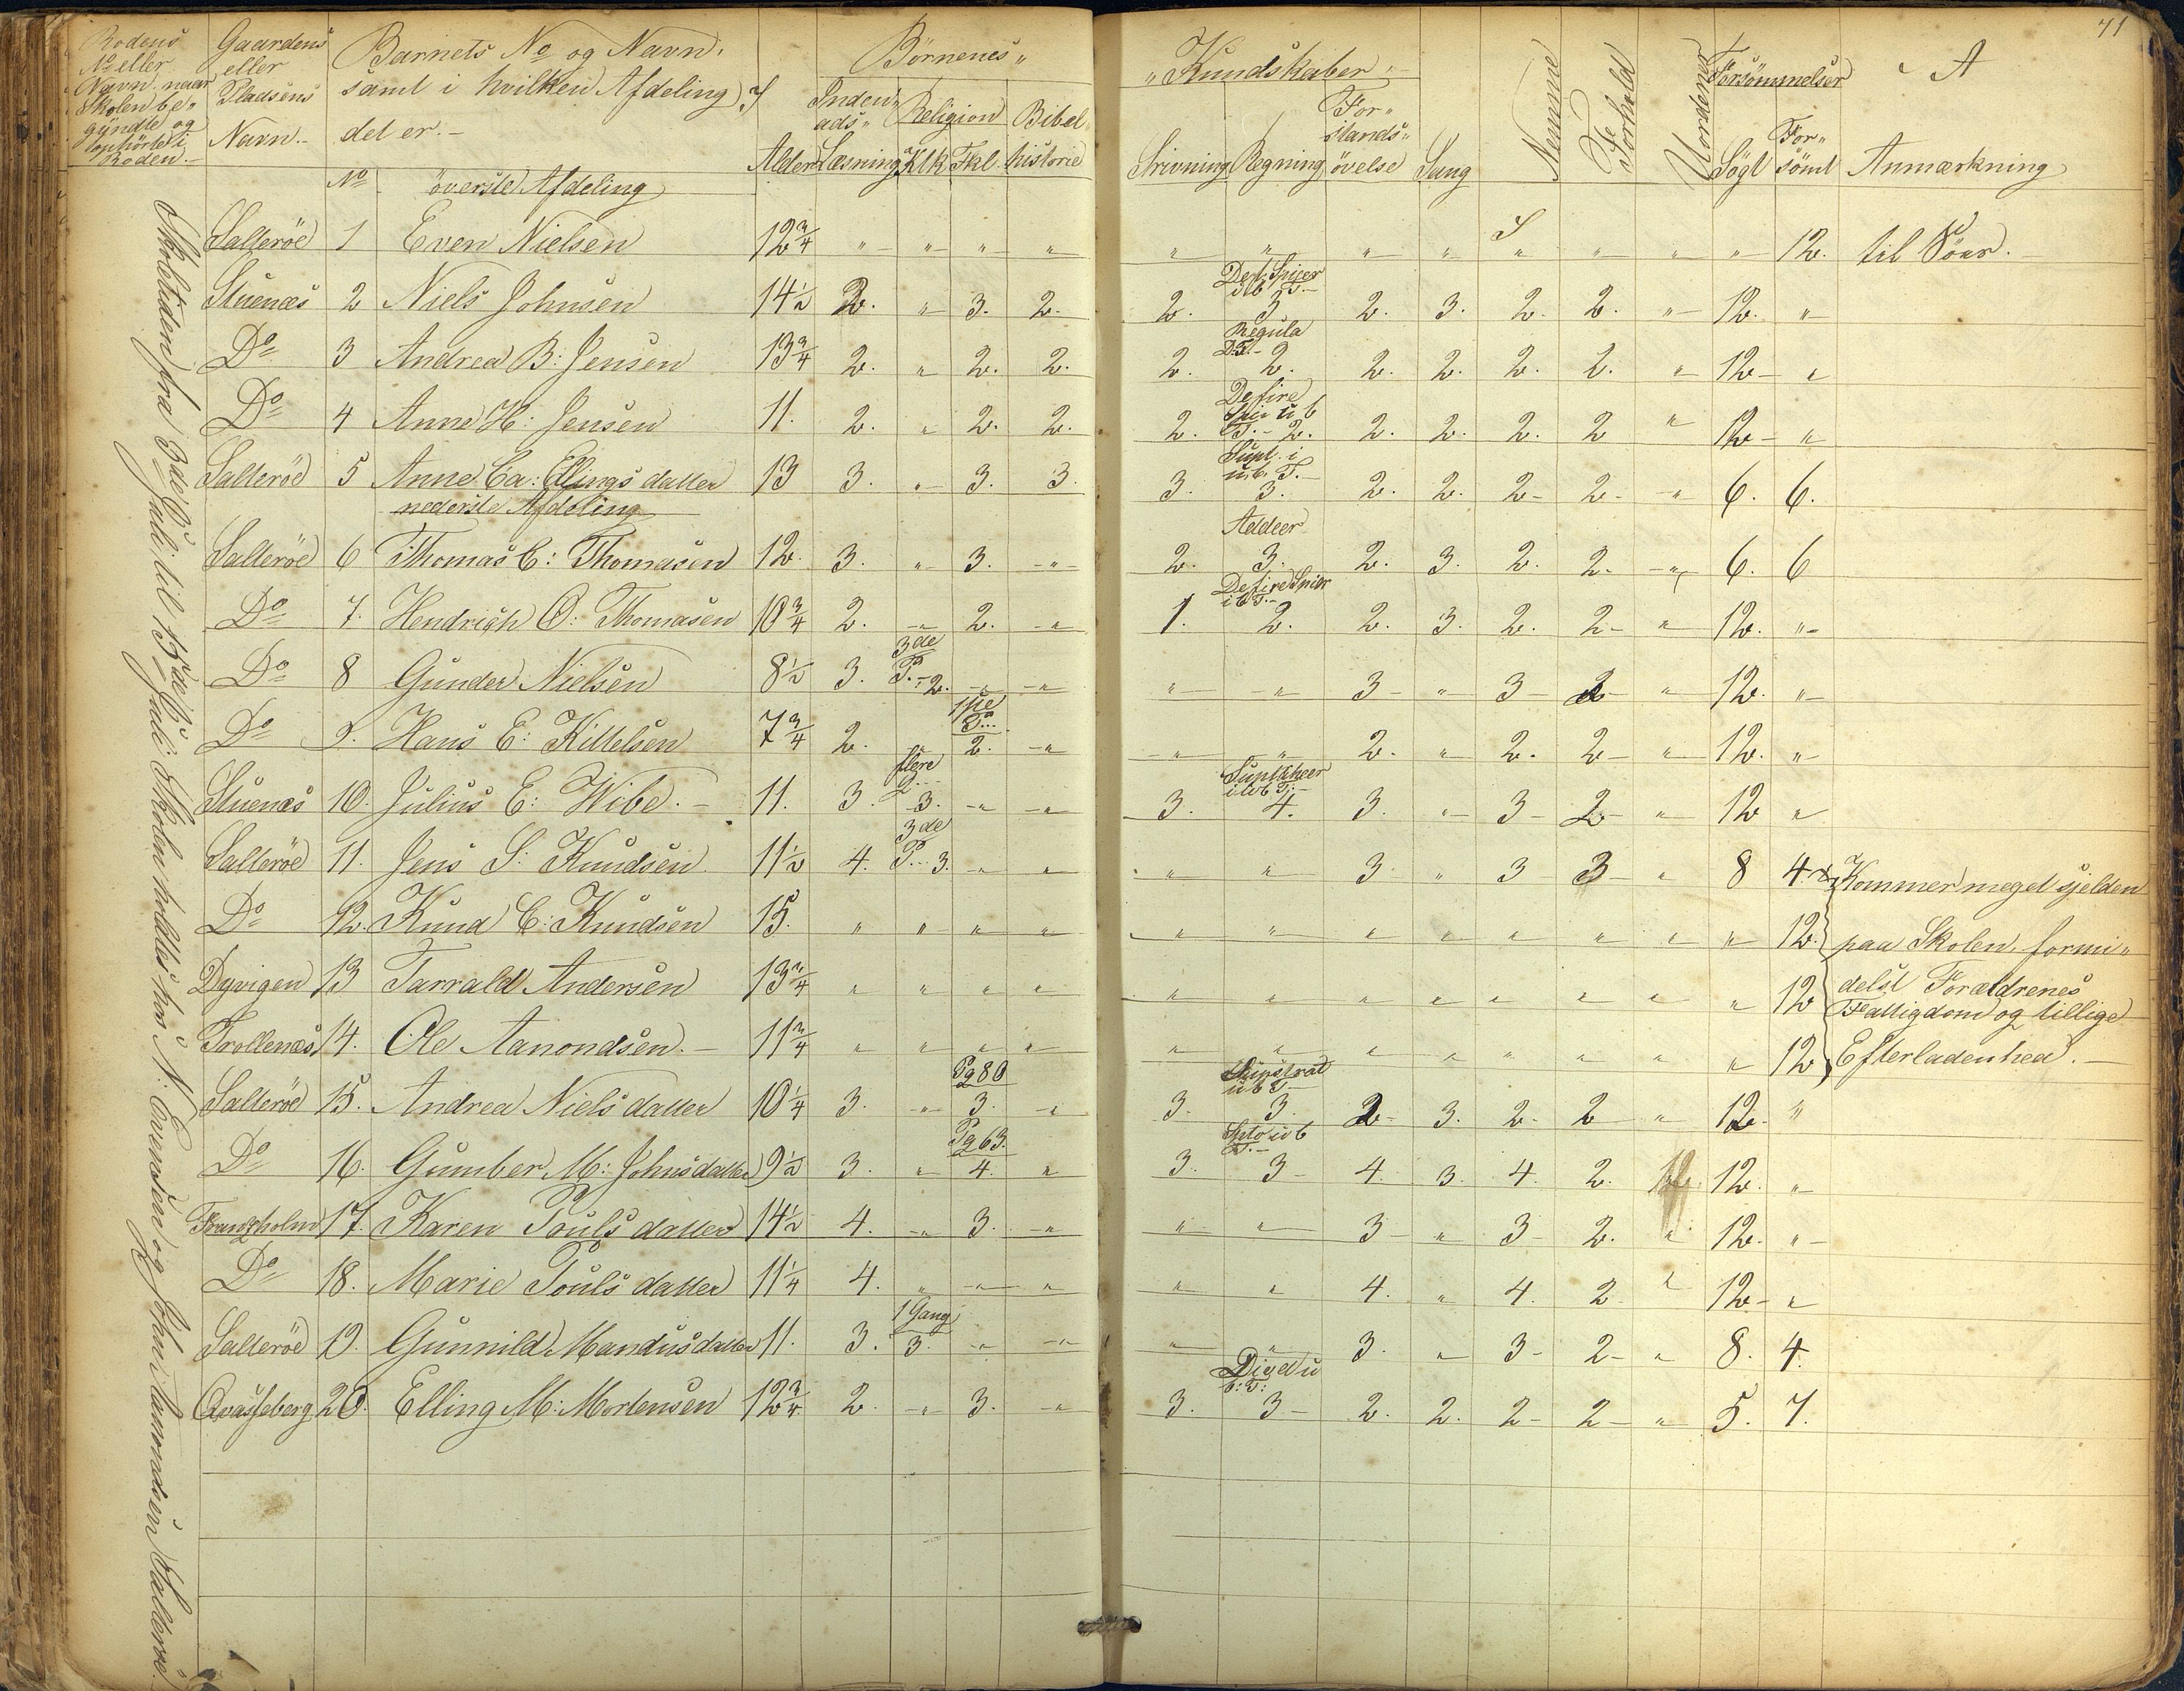 71
Rodens No eller Navn, naar Skolen be„ gyndte og ophörte i Roden.–
Gaardens eller Pladsens Navn.–
Barnets No og Navn, samt i hvilken Afdeling det er.–
Börnenes„
„Kundskaber„
Alder Inden„ ads„ Læsning Religion Klk Fkl. Bibel„ historie
Skrivning Regning For„ stands„ övelse Sang Nemme Forhold Uordener Forsömmelser Sögt For„ sömt Anmærkning
No överste Afdeling
Salteröe 1 Even Nielsen 12 3/4 „ „ „ „ „ „ „ „ „ „ „ „ 12. til Söes.
Stuenæs 2 Niels Johnsen 14 1/2 2. „ 3. 2. 2. 3 2. 3. 2. 2. „ 12. „
Do 3 Andrea B: Jensen 13 3/4 2. „ 2. 2. 2. Regula D:T.– 2. 2. 2. 2. 2. „ 12 – „
Do 4 Anne H: Jensen 11. 2. „ 2. 2. 2. De fire Spis u b T.– 2. 2. 2. 2. 2 „ 12 – „
Salteröe 5 Anne Ca: Ellings datter 13 3. „ 3. 3. 3. Supt. i u.b. T.– 3. 2. 2. 2– 2– „ 6. 6.
nederste Afdeling
Salteröe 6 Thomas C: Thomasen 12. 3. „ 3. „ 2. Addeer 3. 2. 3. 2. 2. „ 6. 6
Do 7. Hendrigh O: Thomasen 10 3/4 2. „ 2. „ 1. De fire Spier i b T.– 2. 2. 3. 2. 2– „ 12. „
Do 8 Gunder Nielsen 8 1/2 3. 3de P.– 2. „ „ „ „ 3– „ 3– 2– „ 12. „
Do 9. Hans E: Kittelsen 7 3/4 2. „ 1ste P... 2. „ „ „ 2. „ 2. 2– „ 12. „
Stuenæs 10. Julius E: Wibe.– 11. 3. flere 3. „ „ 3. 4. 3. „ 3– 2– „ 12 „
Salteröe 11. Jens S: Knudsen 11 1/2 4. 3de P... 3. „ „ „ „ 3 „ 3 3– „ 8 4. Kommer meget sjelden
Do 12. Knud C: Knudsen 15. „ „ „ „ „ „ „ „ „ „ „ „ 12. paa Skolen formi„
Dyvigen 13 Tarrald Andersen 13 3/4 „ „ „ „ „ „ „ „ „ „ „ „ 12 delst Forældrenes Fattigdom og tillige
Trollenæs 14. Ole Aanondsen.– 11 3/4 „ „ „ „ „ „ „ „ „ „ „ „ 12 Efterladenhed.–
Salteröe 15. Andrea Niels datter 10 1/4 3. „ Pg 80 3. „ 3. 3. 2– 3. 2– 2 „ 12. „
Do 16. Gumber M: Johns datter 9 1/2 3. „ Pg 63. 4. „ 3. 3– 4. 3. 4. 2. 12. „
Franzholm 17. Karen Pouls datter 14 1/2 4. „ 3. „ „ „ 3– „ 3– 2. „ 12. „
Do 18. Marie Pouls datter 11 1/4 4. „ „ „ „ „ 4. „ 4. 2 „ 12– „
Salteröe 19. Gunnild Mandusdatter 11. 3. 1 Gang 3. „ „ „ „ 3. „ 3– 2– „ 8. 4.
Qvasseberg 20. Elling M: Mortensen 12 3/4 2. „ 3. „ 3. 3– 2. 2. 2– 2– „ 5. 7.
Skoletiden fra 3de Juli til 15de Juli. Skolen holdtes hos N: Evensen og John Aanondsen Salteröe.